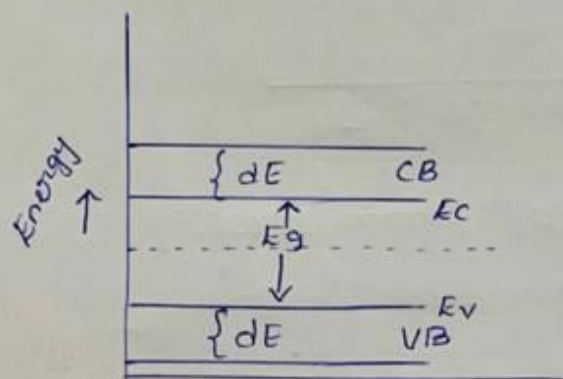 Energy
{ dE CB
Ec
Eg
Ev
{ dE VB